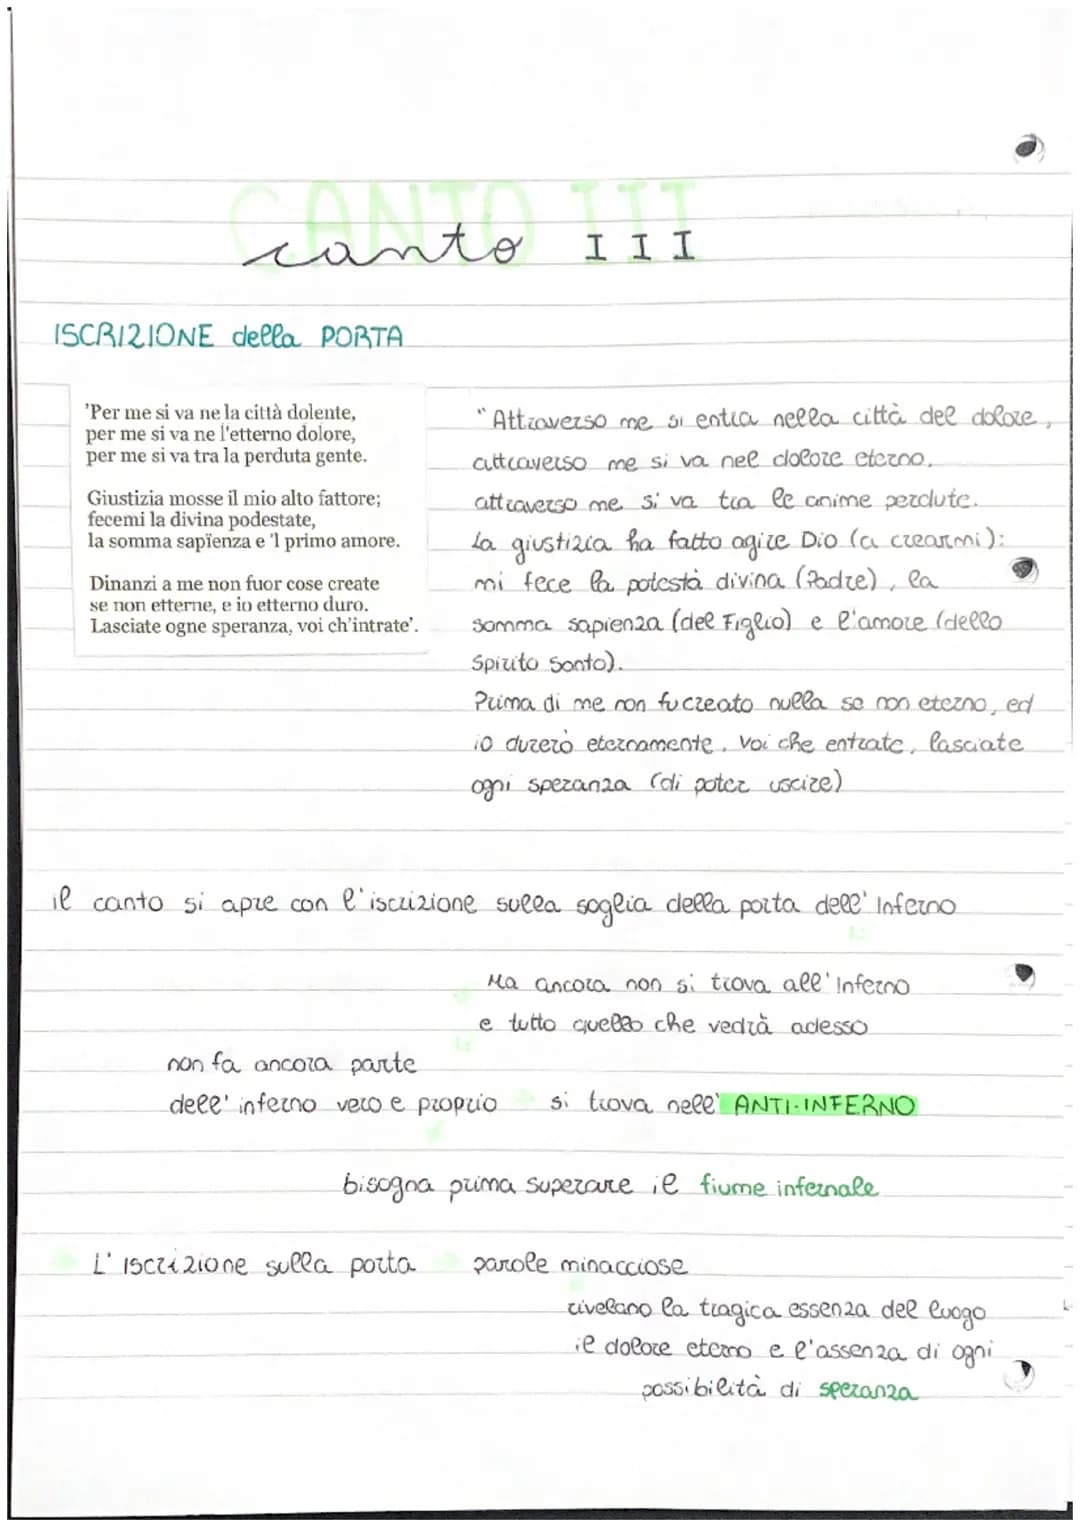 CANTO III
canto III
ISCRIZIONE della PORTA
'Per me si va ne la città dolente,
per me si va ne l'etterno dolore,
per me si va tra la perduta gente.
Giustizia mosse il mio alto fattore;
fecemi la divina podestate,
la somma sapïenza e 'l primo amore.
Dinanzi a me non fuor cose create
se non etterne, e io etterno duro.
Lasciate ogne speranza, voi ch'intrate'.
"Attraverso me si entra nella città del dolore,
attraverso me si va nel dolore eterno,
attraverso me si va tra le anime perdute.
La giustizia ha fatto agire Dio (a crearmi):
mi fece la potestà divina (Padre), la
somma sapienza (del Figlio) e l'amore (dello
Spirito Santo).
Prima di me non fu creato nulla se non eterno, ed
io durerò eternamente. Voi che entrate, lasciate
ogni speranza (di poter uscire)
il canto si apre con l'iscrizione sulla soglia della porta dell'Inferno
Ma ancora non si trova all'Inferno
e tutto quello che vedrà adesso
non fa ancora parte
dell'inferno vero e proprio si trova nell'ANTI-INFERNO
bisogna prima superare il fiume infernale
L'iscrizione sulla porta parole minacciose
rivelano la tragica essenza del luogo
il dolore eterno e l'assenza di ogni
possibilità di speranza